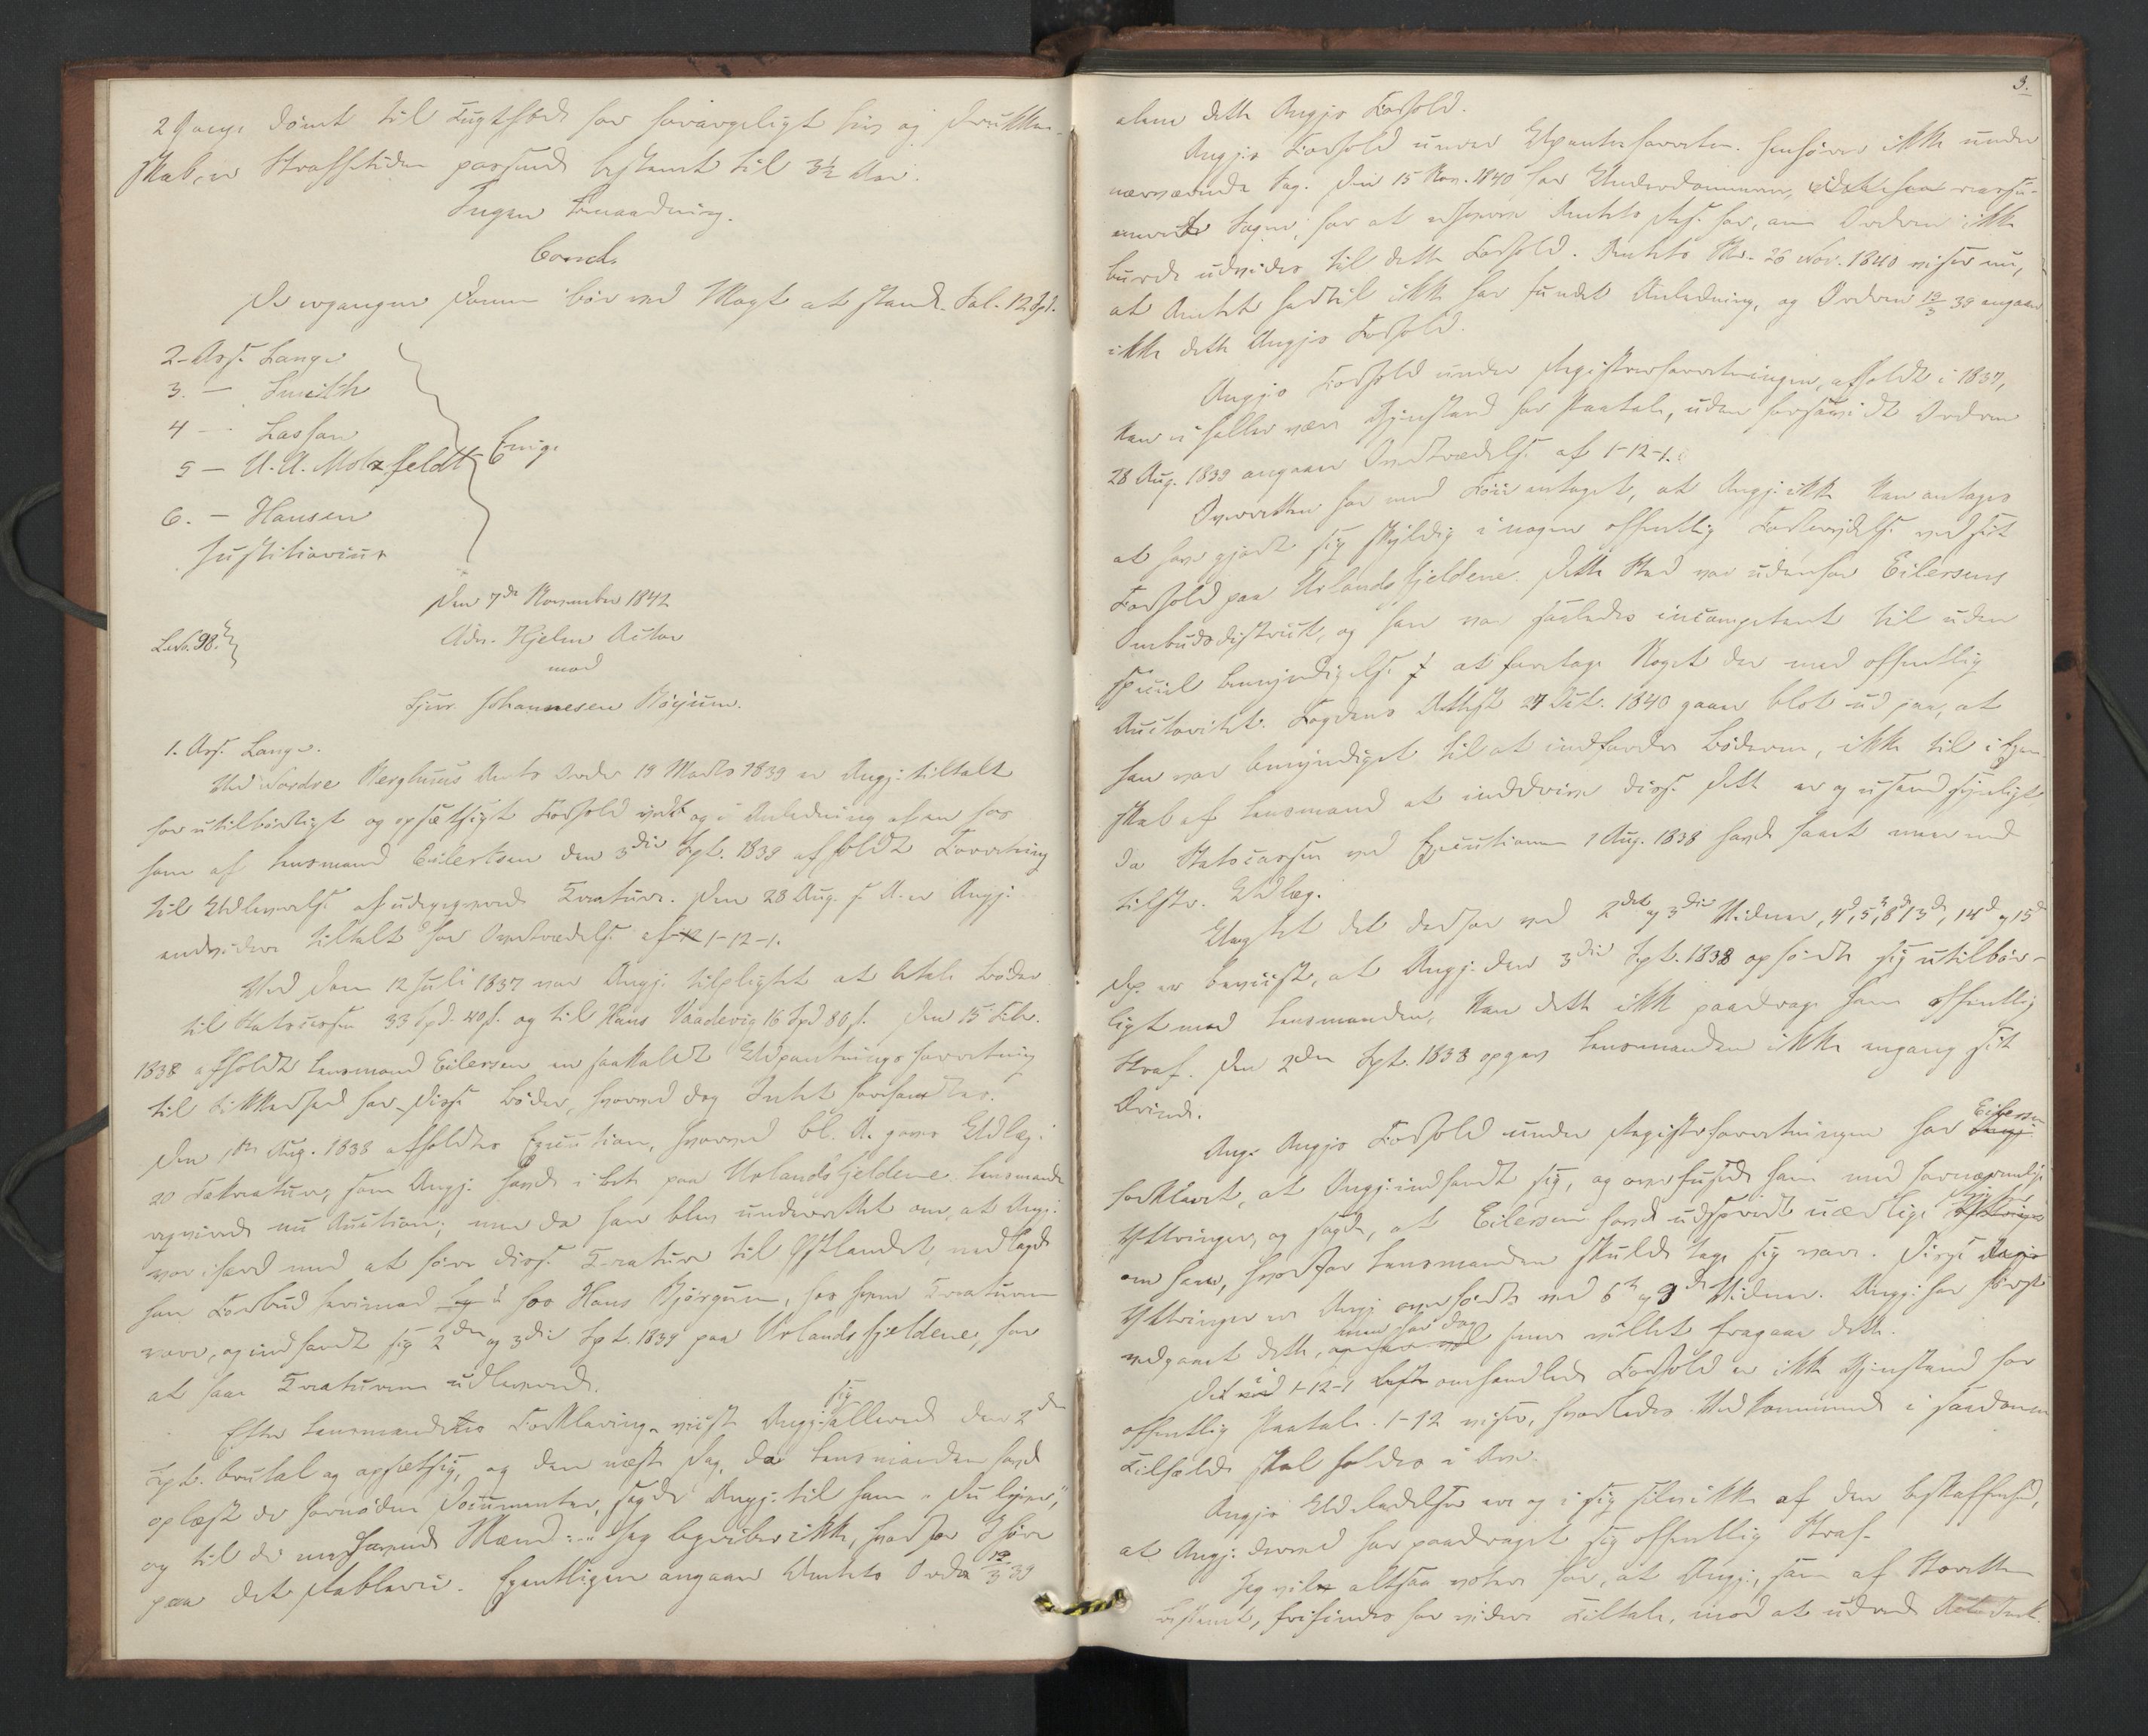 2 Gange dömt til Tugthus for forargeligt Liv og Drukken-
skab, er Straffetiden passende bestemt til 3½ Aar.
Ingen Benaadning.
Concl.
De ergangne Domme bör ved Magt at stande. Sal. 12 Spd.
2- Ass. Lange
3. - Smith
4 - Lasson
5 - U. A. Motzfeldt
Enige
6. - Hansen
Justitiarius
Den 7de November 1842
Adv. Hjelm Actor
L. No. 98.
mod
Sjur Johannesen
1. Ass. Lange.
Ved Nordre Bergenhuus Amts Order 19 Marts 1839 er Angj: tiltalt
for utilbörligt og opsætsigt Forhold ved og i Anledning af en hos
ham af Lensmand Eilertsen den 3die Spt. 1839 afholdt Forretning
til Udleverelse af Kreature. Den 28 Aug. s. A. er Angj:
endvidere tiltalt for Overtrædelse af 1-12-1.
Ved Dom 12 Juli 1837 var Angj: tilpligtet at betale Böder
til Statscassen 33 Spd. 40 s. og til Hans Vaadevig 16 Spd 80 s. Den 15 Febr.
1838 afholdt Lensmand Eilersen en saakaldt Udpantningsforretning
til Sikkerhed for disse Böder, hvorved dog Intet
Den 1ste Aug. 1838 afholdtes Execution, hvorved bl. A. gaves Udlæg i
20 Kreature, som Angj. havde i paa Urlandsfjeldene. Lensmanden
nu Auction; men da han blev underrettet om, at Angj:
var ifærd med at före disse Kreature til Östlandet, nedlagde
han Forbud herimod hos Hans Björgum, hos hvem Kreaturene
vare, og indfandt sig 2den og 3die Spt. 1839 paa Urlandsfjeldene, for
at faae Kreaturene udleverede.
Efter Lensmandens Forklaring viiste Angj: sig allerede den 2den
Spt. brutal og opsætsig, og den næste Dag, da Lensmanden havde
oplæst de fornödne Documenter, sagde Angj: til ham "Du lyver",
og til de Mænd: "Jeg begriber ikke, hvorfor I höre
paa det Rableri. Egentligen angaaer Amtets Order 19/3 39
3.
alene dette Angjs Forhold.
Angjs Forhold under Udpantnforretn. henhörer ikke under
nærværende Sag. Den 15 Nov. 1840 har Underdommeren,
Sagen, for at erhverve Amtets Res. for, om Orderen ikke
burde udvides til dette Forhold. Amtets Skr. 26 Nov. 1840 viser nu,
at Amtet hertil ikke har fundet Anledning, og Orderen 19/3 39 angaaer
ikke dette Angjs Forhold.
Angjs Forhold under Registrerforretningen, afholdt i 1837,
kan ei heller være Gjenstand for Paatale, uden forsaavidt Orderen
28 Aug. 1839 angaaer Overtrædelse af 1-12-1.
Overretten har med Föie antaget, at Angj: ikke kan antages
at have gjort sig skyldig i nogen offentlig Forbrydelse ved sit
Forhold paa Urlandsfjeldene. Dette Sted var udenfor Eilersens
Ombudsdistrict, og han var saaledes incompetent til uden
speciel Bemyndigelse at foretage Noget der med offentlig
Auctoritet. Fogdens Attest 27 Oct. 1840 gaaer blot ud paa, at
han var bemyndiget til at indfordre Böderne, ikke til i Egen-
skab af Lensmand at inddrive disse. Dette er og usandsynligt
da Statscassen ved Executionen 1 Aug. 1838 havde faaet mere end
tilstr. Udlæg.
Uagtet det derfor ved 2det og 3die Vidner, 4d, 5t, 8d, 13d, 14d og 15d
Dep. er beviist, at Angj. den 3die Spt. 1838 opförte sig utilbör-
ligt mod Lensmanden, kan dette ikke paadrage ham offentlig
Straf. Den 2den Spt. 1838 opgav Lensmanden ikke engang sit
Ærinde.
Ang. Angjs Forhold under Registrforretningen har Eilersen
forklaret, at Angj: indfandt sig, og overfusede ham med fornærmelige
Yttringer, og sagde, at Eilersen havde udspredt uærlige
om ham, hvorfor Lensmanden skulde tage sig vare. Disse
Yttringer er Angj. overfört ved 6te og 9de Vidner. Angj: har först
vedgaaet dette, men har dog senere villet fragaae dette.
Det ved 1-12-1 omhandlede Forhold er ikke Gjenstand for
offentlig Paatale. 1-12 viser, hvorledes Vedkommende i saadanne
Tilfælde skal holdes i Ave.
Angjs Udeladelser er og i sig selv ikke af den Beskaffenhed,
at Angj: derved har paadraget sig offentlig Straf.
Jeg vil altsaa votere for, at Angj:, som af Overretten
bestemt, frifindes for videre Tiltale, mod at udrede